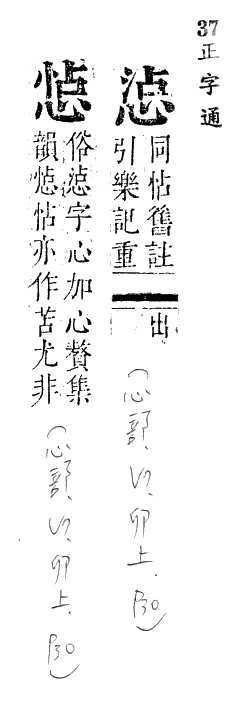 37正字通
惉
同怗舊註
引樂記重
出
(心部, 卯上, P30)
俗惉字心加心贅集
韻怗亦作苫尤非
(心部, 卯上, P30)